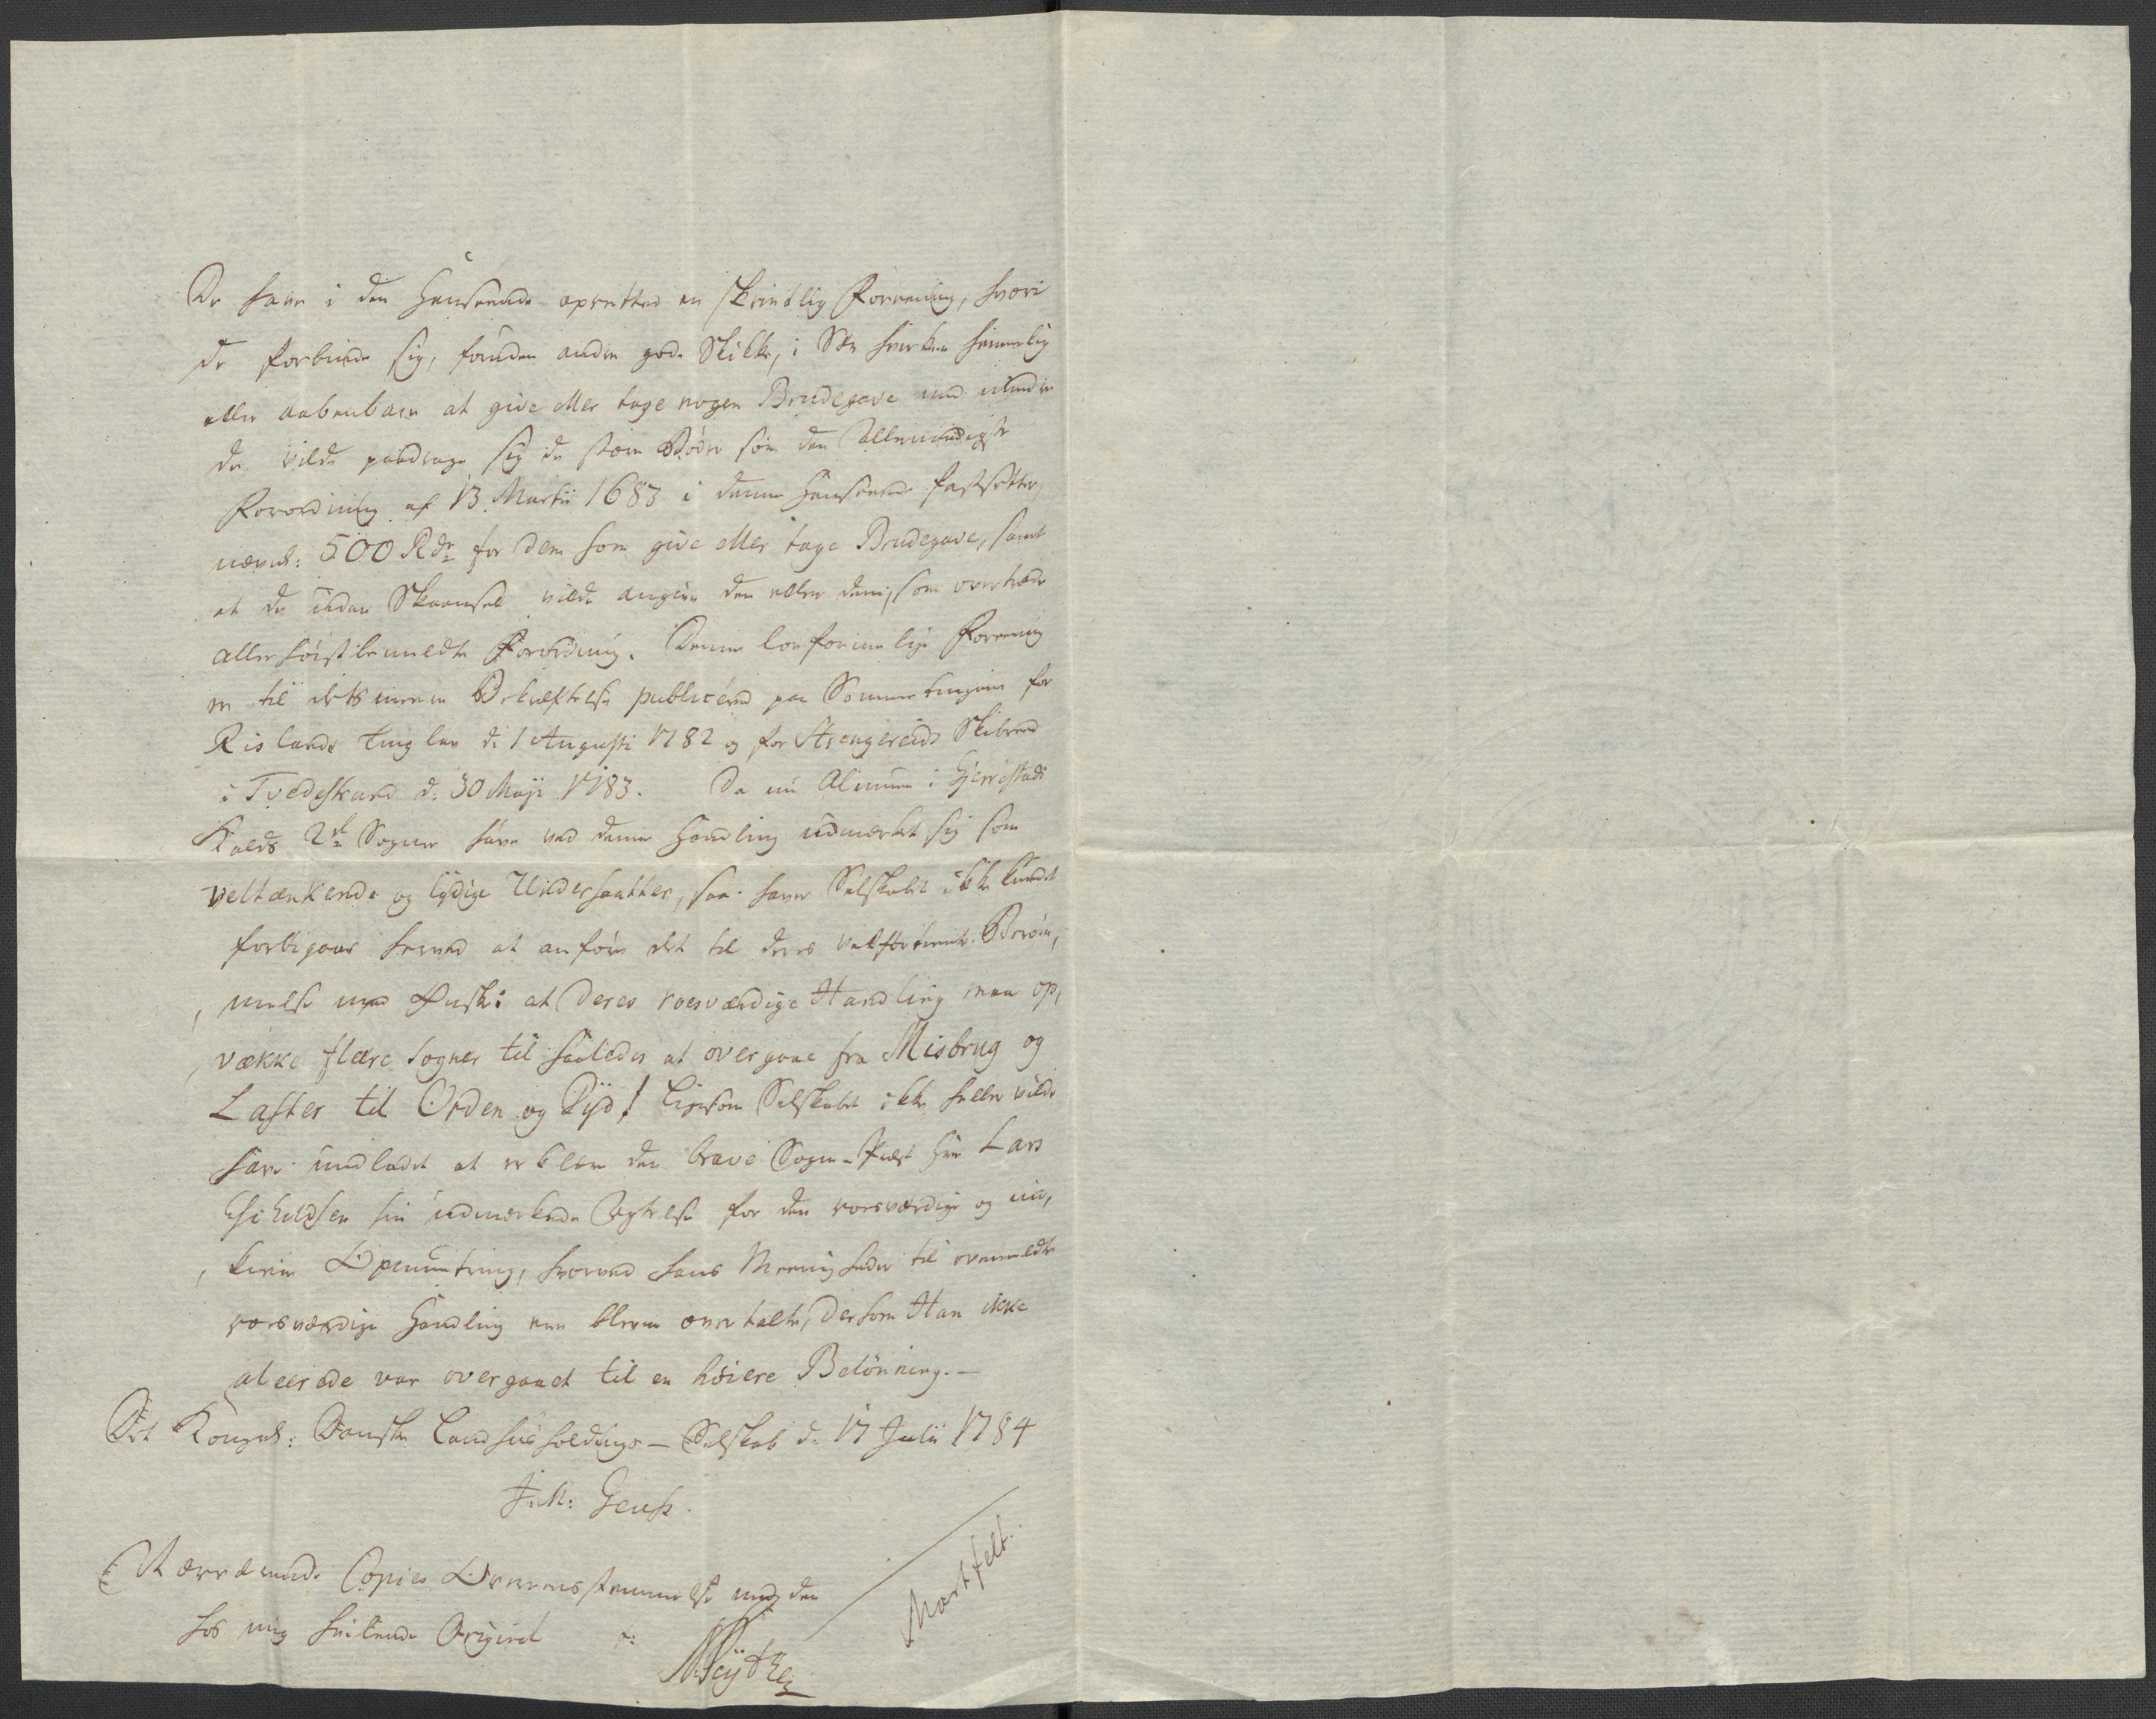 De have i den Henseende oprettet en skriftlig Foreening, hvori
de forbinde sig, foruden andre gode Skikke, i Sær hverken hemmelig
eller aabenbare at give eller tage nogen Brudegave med mindre
de vilde paadrage sig de store Bøder som den Allernaadigste
Forordning af 13 Martii 1683 i denne Henseende fastsetter,
nævnl: 500 Rdr for dem som give eller tage Brudegave, samt
at de uden Skaansel vilde angive den eller dem, som overtræde
allerhøistbemeldte Forordning. Denne lovformelige Foreening
er til desmeere Bekræftelse publiceret paa Sommertingene for
Rislands Tinglav d: 1 Augusti 1782 og for Strengereids Skibred
i Tvedestrand d: 30 Maji 1783. Da nu Almuen i Gjerrestads
Kalds 2de Sogner have ved denne Handling udmerket sig som
veltænkende og lydige Undersaatter, saa haver Selskabet ikke kundet
forbigaae herved at anføre det til deres velfortiente Berøm,
,melse med Ønske: at Deres roesværdige Handling maa op,
,vække fleere Sogner til saaledes at overgaae fra Misbrug og
Laster til Orden og Dyd! ligesom Selskabet ikke heller vilde
have undladt at erklære den brave Sogne-Præst Hr. Lars
sin udmerkede Agtelse for den roesværdige og
Opmuntring, hvorved hans Meenigheder til ovenmeldte
roesværdige Handling ere blevne overtalte, dersom Han ikke
aleerede var overgaaet til en høiere Belønning. —
Det Kongel: Danske Landhuusholdings-Selskab d: 17 Julii 1784
J: M: Geuss.
Martfelt.
Nærværende Copies Overensstemmelse med den
hos mig hvilende Original